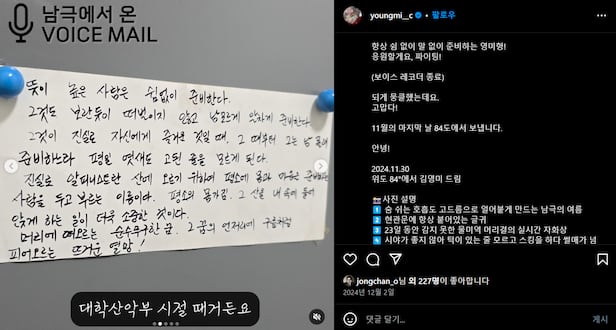 남극에서 온
VOICE MAIL
뜻이 높은 사람은 쉼없이 준비한다.
그것도 보란듯이 떠벌이지 않고 남모르게 알차게 준비한다.
그것이 진실로 자신에게 즐거운 것일 때, 그 때부터 그는 남 몰래
준비하느라 평원 옛새도 고된 줄 모르게 된다.
진실로 알피니스트란 산에 오르기 위하여 평소에 몸과 마음을 준비하는
사람을 두고 부르는 이름이다. 평소의 몸가짐, 그 산을 내 속에 들여
앉게 하는 일이 더욱 소중한 것이다.
머리에 떠오르는 순수무구한 꿈, 그 꿈의 언저리에 구름처럼
피어오르는 뜨거운 열망!
대학산악부 시절 때거든요
youngmi__c • 팔로우
항상 쉼 없이 말 없이 준비하는 영미형!
응원할게요, 파이팅!
(보이스 레코더 종료)
되게 뭉클했는데요.
고맙다!
11월의 마지막 날 84도에서 보냅니다.
안녕!
2024.11.30
위도 84°에서 김영미 드림
사진 설명
1 숨 쉬는 호흡도 고드름으로 얼어붙게 만드는 남극의 여름
2 현관문에 항상 붙어있는 글귀
3 23일 동안 감지 못한 물미역 머리결의 실시간 자화상
4 시야가 좋지 않아 턱이 있는 줄 모르고 스킹을 하다 썰매가 넘
jongchan_o님 외 227명이 좋아합니다
2024년 12월 2일
댓글 달기...
게시